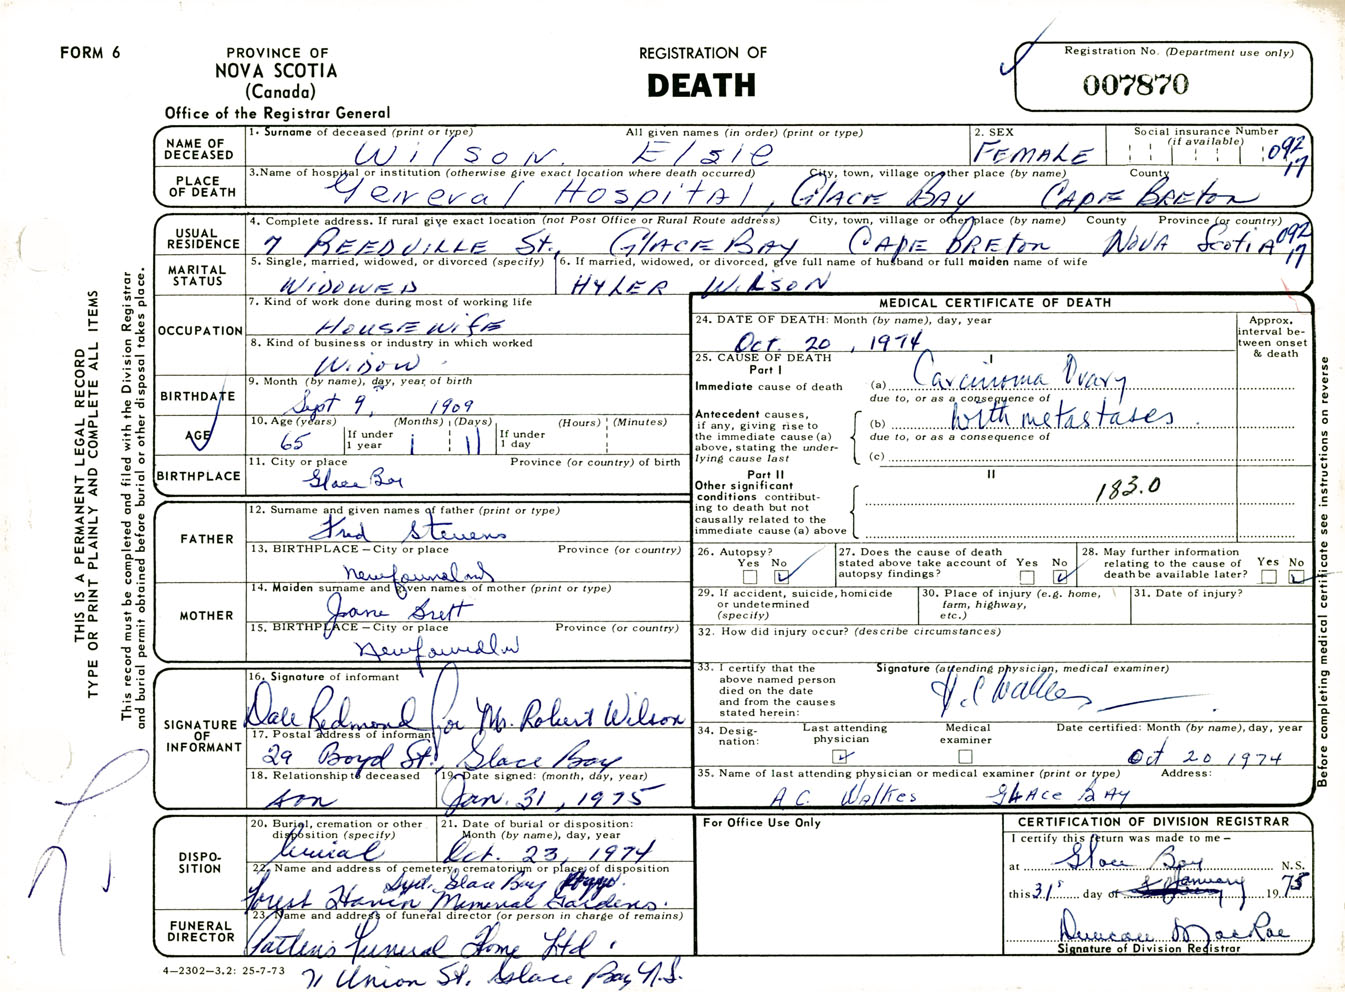 FORM 6
PROVINCE OF
NOVA SCOTIA
(Canada)
Office of the Registrar General
REGISTRATION OF
DEATH
Registration No. (Department use only)
007870
NAME OF DECEASED
1. Surname of deceased (print or type) All given names (in order) (print or type)
Wilson. Elsie
2. SEX
FEMALE
Social insurance Number
(if available)
092
17
PLACE OF DEATH
3. Name of hospital or institution (otherwise give exact location where death occurred) City, town, village or other place (by name) County
General Hospital, Glace Bay Cape Breton
USUAL RESIDENCE
4. Complete address. If rural give exact location (not Post Office or Rural Route address) City, town, village or other place (by name) County Province (or country)
7 REEDVILLE St., GLACE BAY CAPE BRETON NOVA SCOTIA 092
17
MARITAL STATUS
5. Single, married, widowed, or divorced (specify)
WIDOWED
6. If married, widowed, or divorced, give full name of husband or full maiden name of wife
HYLER WILSON
OCCUPATION
7. Kind of work done during most of working life
HOUSEWIFE
8. Kind of business or industry in which worked
WIDOW
BIRTHDATE
9. Month (by name), day, year of birth
Sept 9, 1909
AGE
10. Age (years) (Months) (Days) (Hours) (Minutes)
65 If under 1 year 1 11 If under 1 day
BIRTHPLACE
11. City or place Province (or country) of birth
Glace Bay
FATHER
12. Surname and given names of father (print or type)
Fred Stevens
13. BIRTHPLACE – City or place Province (or country)
Newfoundland
MOTHER
14. Maiden surname and given names of mother (print or type)
Jane
15. BIRTHPLACE – City or place Province (or country)
Newfoundland
SIGNATURE OF INFORMANT
16. Signature of informant
Dale Redmond for Mr. Robert Wilson
17. Postal address of informant
29 Boyd St., Glace Bay
18. Relationship to deceased
son
19. Date signed: (month, day, year)
Jan. 31, 1975
DISPO-
SITION
20. Burial, cremation or other disposition (specify)
burial
21. Date of burial or disposition: Month (by name), day, year
Oct. 23, 1974
22. Name and address of cemetery, crematorium or place of disposition
Syd. Glace Bay
Forest Haven Memorial Gardens.
FUNERAL DIRECTOR
23. Name and address of funeral director (or person in charge of remains)
Patten Funeral Home Ltd.
71 Union St. Glace Bay N.S.
4–2302–3.2: 25-7-73
MEDICAL CERTIFICATE OF DEATH
24. DATE OF DEATH: Month (by name), day, year
Oct. 20, 1974
Approx. interval be-
tween onset
& death
25. CAUSE OF DEATH
Part I
I
Immediate cause of death (a) Carcinoma Ovary
due to, or as a consequence of
Antecedent causes,
if any, giving rise to
the immediate cause (a)
above, stating the under-
lying cause last
(b) With metastases
due to, or as a consequence of
(c)
Part II
II
Other significant
conditions contribut-
ing to death but not
causally related to the
immediate cause (a) above
183.0
26. Autopsy?
Yes No
27. Does the cause of death stated above take account of autopsy findings?
Yes No
28. May further information relating to the cause of death be available later?
Yes No
29. If accident, suicide, homicide or undetermined (specify)
30. Place of injury (e.g. home, farm, highway, etc.)
31. Date of injury?
32. How did injury occur? (describe circumstances)
33. I certify that the
above named person
died on the date
and from the causes
stated herein:
Signature (attending physician, medical examiner)
A.C. Walkes
34. Desig-
nation:
Last attending physician
Medical examiner
Date certified: Month (by name), day, year
Oct 20 1974
35. Name of last attending physician or medical examiner (print or type) Address:
A.C. Walkes GLACE BAY
For Office Use Only
CERTIFICATION OF DIVISION REGISTRAR
I certify this return was made to me –
at Glace Bay N.S.
this 31st day of January 1975
Duncan MacRae
Signature of Division Registrar
THIS IS A PERMANENT LEGAL RECORD
TYPE OR PRINT PLAINLY AND COMPLETE ALL ITEMS
This record must be completed and filed with the Division Registrar
and burial permit obtained before burial or other disposal takes place.
Before completing medical certificate see instructions on reverse